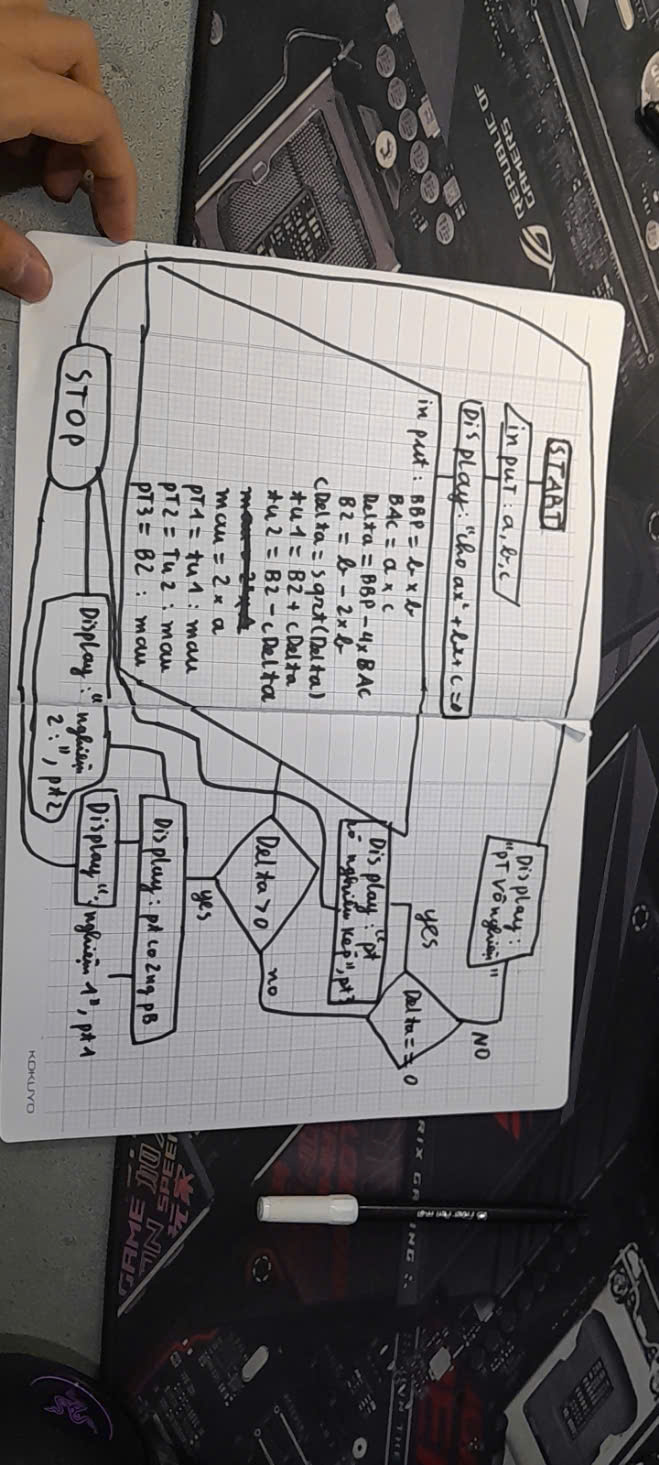 START
input : a, b, c
Display : "cho ax² + bx + c = 0
input : BBP = b × b
BAC = a × c
Delta = BBP - 4 × BAC
B2 = b - 2 × b
cDelta = sqrt(Delta)
tu1 = B2 + cDelta
tu2 = B2 - cDelta
mau = 2 × a
pT1 = tu1 : mau
pT2 = Tu2 : mau
pT3 = B2 : mau
STOP
Display :
"pT vô nghiệm"
NO
Delta == 0
yes
Display : "pt
có nghiệm kép", pt3
Delta > 0
no
yes
Display : pt có 2 ng pB
Display : "nghiệm 1", pt1
Display : "nghiệm
2 : ", pt2
KOKUYO
REPUBLIC OF
GAMERS